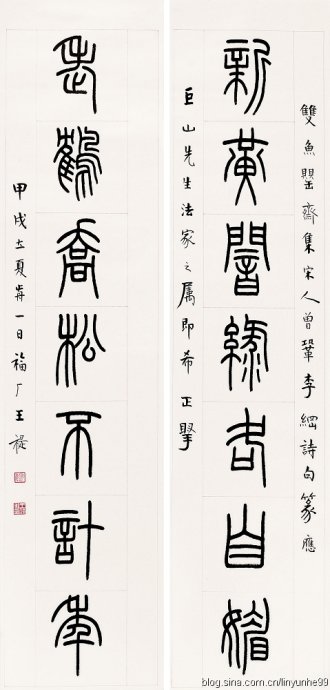 雙魚罌齋集宋人曾鞏李綱詩句篆應
新黃闇綠各自媚
巨山先生法家之属即希 正掔
老鶴喬松不計年
甲戌立夏歬一日福厂王禔
blog.sina.com.cn/linyunhe99